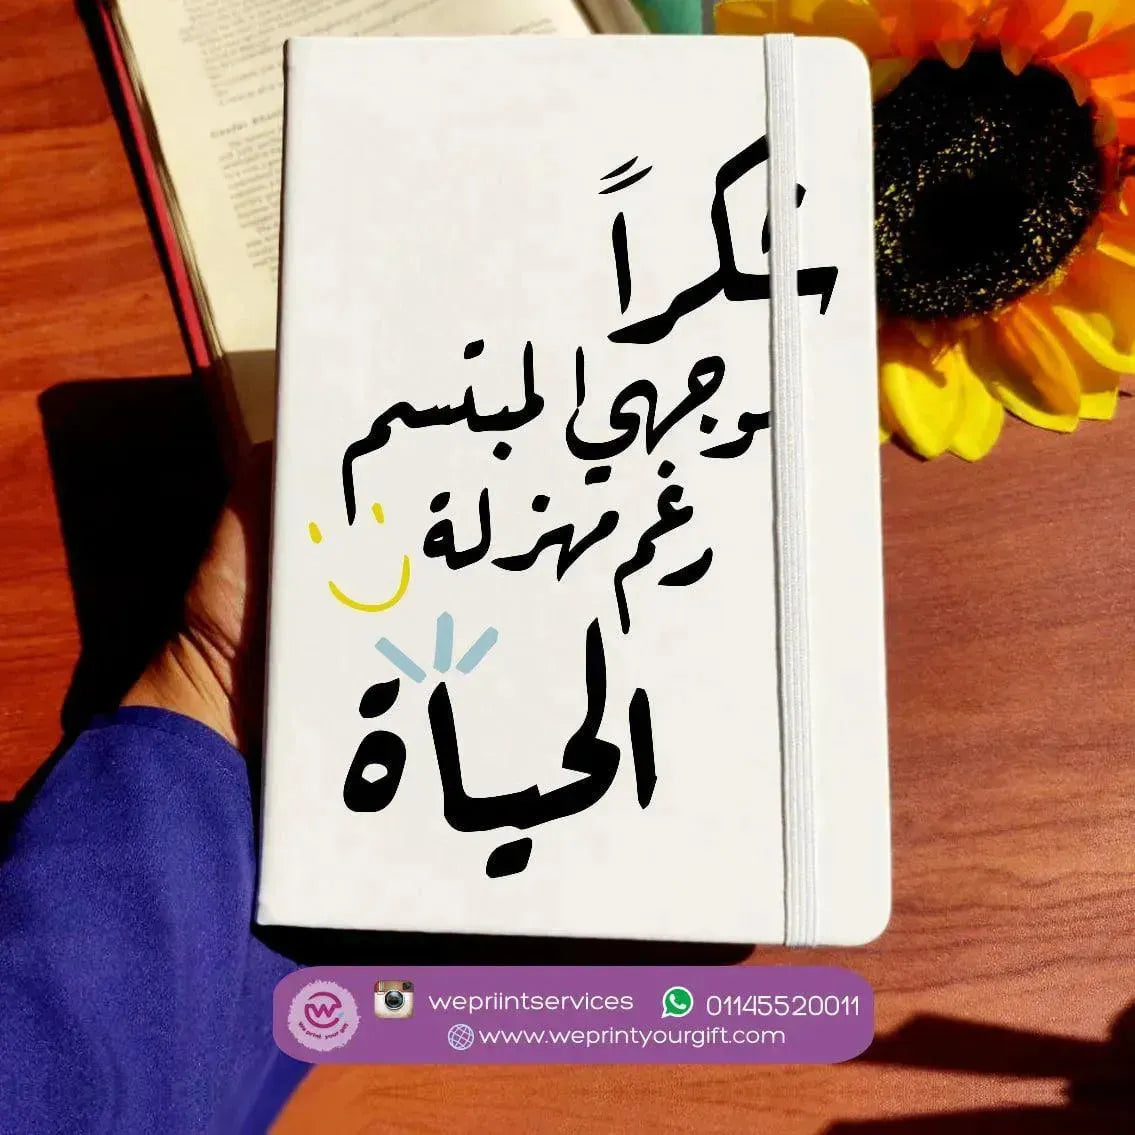 شكراً
لوجهي المبتسم
رغم مهزلة
الحياة
wepriintservices
01145520011
www.weprintyourgift.com
We print your gift